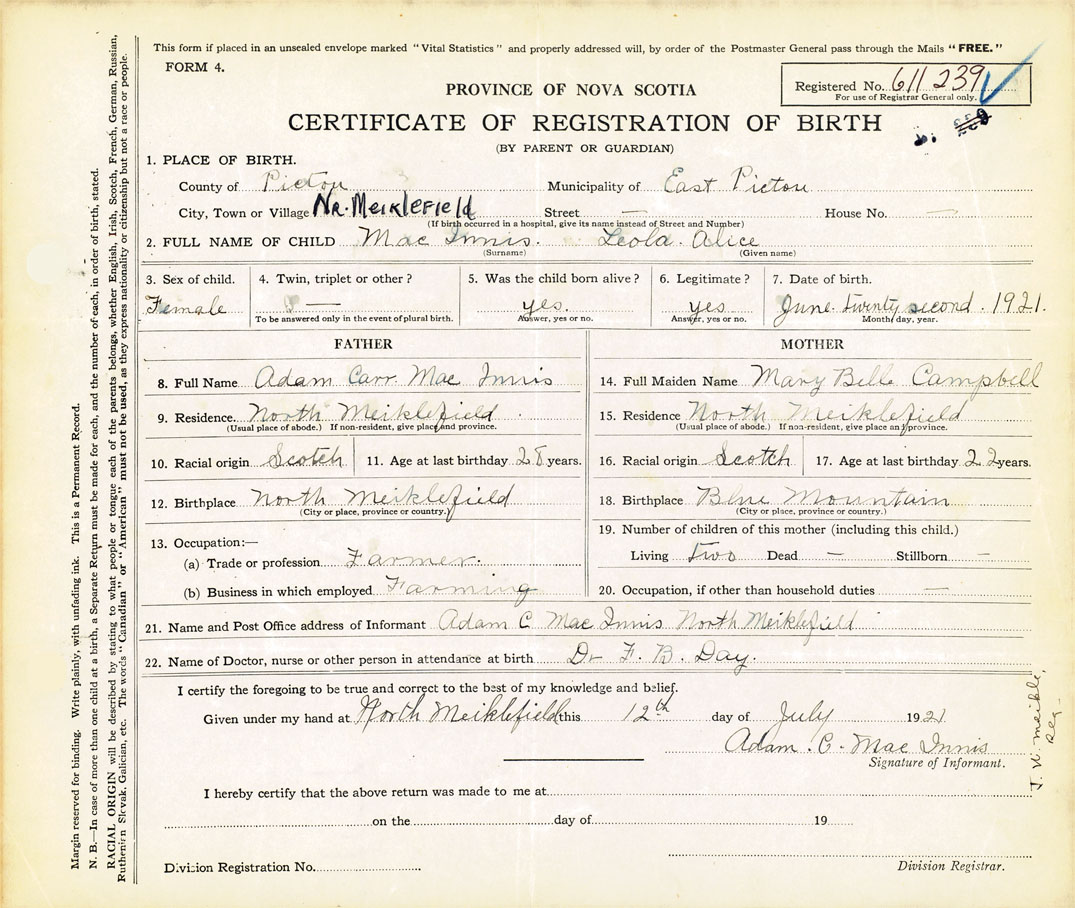 This form if placed in an unsealed envelope marked "Vital Statistics" and properly addressed will, by order of the Postmaster General pass through the Mails "FREE."
FORM 4.
Registered No. 611 239
For use of Registrar General only.
PROVINCE OF NOVA SCOTIA
CERTIFICATE OF REGISTRATION OF BIRTH
(BY PARENT OR GUARDIAN)
1. PLACE OF BIRTH.
County of Pictou Municipality of East Pictou
City, Town or Village Nr. Meiklefield Street — House No. —
(If birth occurred in a hospital, give its name instead of Street and Number)
2. FULL NAME OF CHILD Mac Innis. Leola Alice
(Surname) (Given name)
3. Sex of child. 4. Twin, triplet or other? 5. Was the child born alive? 6. Legitimate? 7. Date of birth.
Female — yes. yes June twenty second. 1921.
To be answered only in the event of plural birth. Answer, yes or no. Answer, yes or no. Month, day, year.
FATHER MOTHER
8. Full Name Adam Carr Mac Innis 14. Full Maiden Name Mary Belle Campbell
9. Residence. North Meiklefield 15. Residence North Meiklefield
(Usual place of abode.) If non-resident, give place and province. (Usual place of abode.) If non-resident, give place and province.
10. Racial origin Scotch 11. Age at last birthday 28 years. 16. Racial origin Scotch 17. Age at last birthday 22 years.
12. Birthplace North Meiklefield 18. Birthplace Blue Mountain
(City or place, province or country.) (City or place, province or country.)
13. Occupation:— 19. Number of children of this mother (including this child.)
(a) Trade or profession Farmer. Living two Dead — Stillborn —
(b) Business in which employed Farming 20. Occupation, if other than household duties —
21. Name and Post Office address of Informant Adam C Mac Innis North Meiklefield
22. Name of Doctor, nurse or other person in attendance at birth Dr F. B. Day.
I certify the foregoing to be true and correct to the best of my knowledge and belief.
Given under my hand at North Meiklefield this 12th day of July 1921
Adam. C. Mac Innis
Signature of Informant.
I hereby certify that the above return was made to me at
on the day of 19
Division Registration No. Division Registrar.
Margin reserved for binding. Write plainly, with unfading ink. This is a Permanent Record.
N. B.—In case of more than one child at a birth, a Separate Return must be made for each, and the number of each, in order of birth, stated.
RACIAL ORIGIN will be described by stating to what people or tongue each of the parents belongs, whether English, Irish, Scotch, French, German, Russian,
Ruthenian, Slovak, Galician, etc. The words "Canadian" or "American" must not be used, as they express nationality or citizenship but not a race or people.
J. W. Meikle,
Reg.